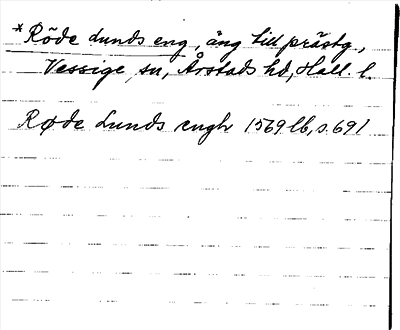 *Röde Lunds eng, äng till prästg.,
Vessige sn, Årstads hd, Hall. l.
Røde Lunds engh 1569 lb, s. 691